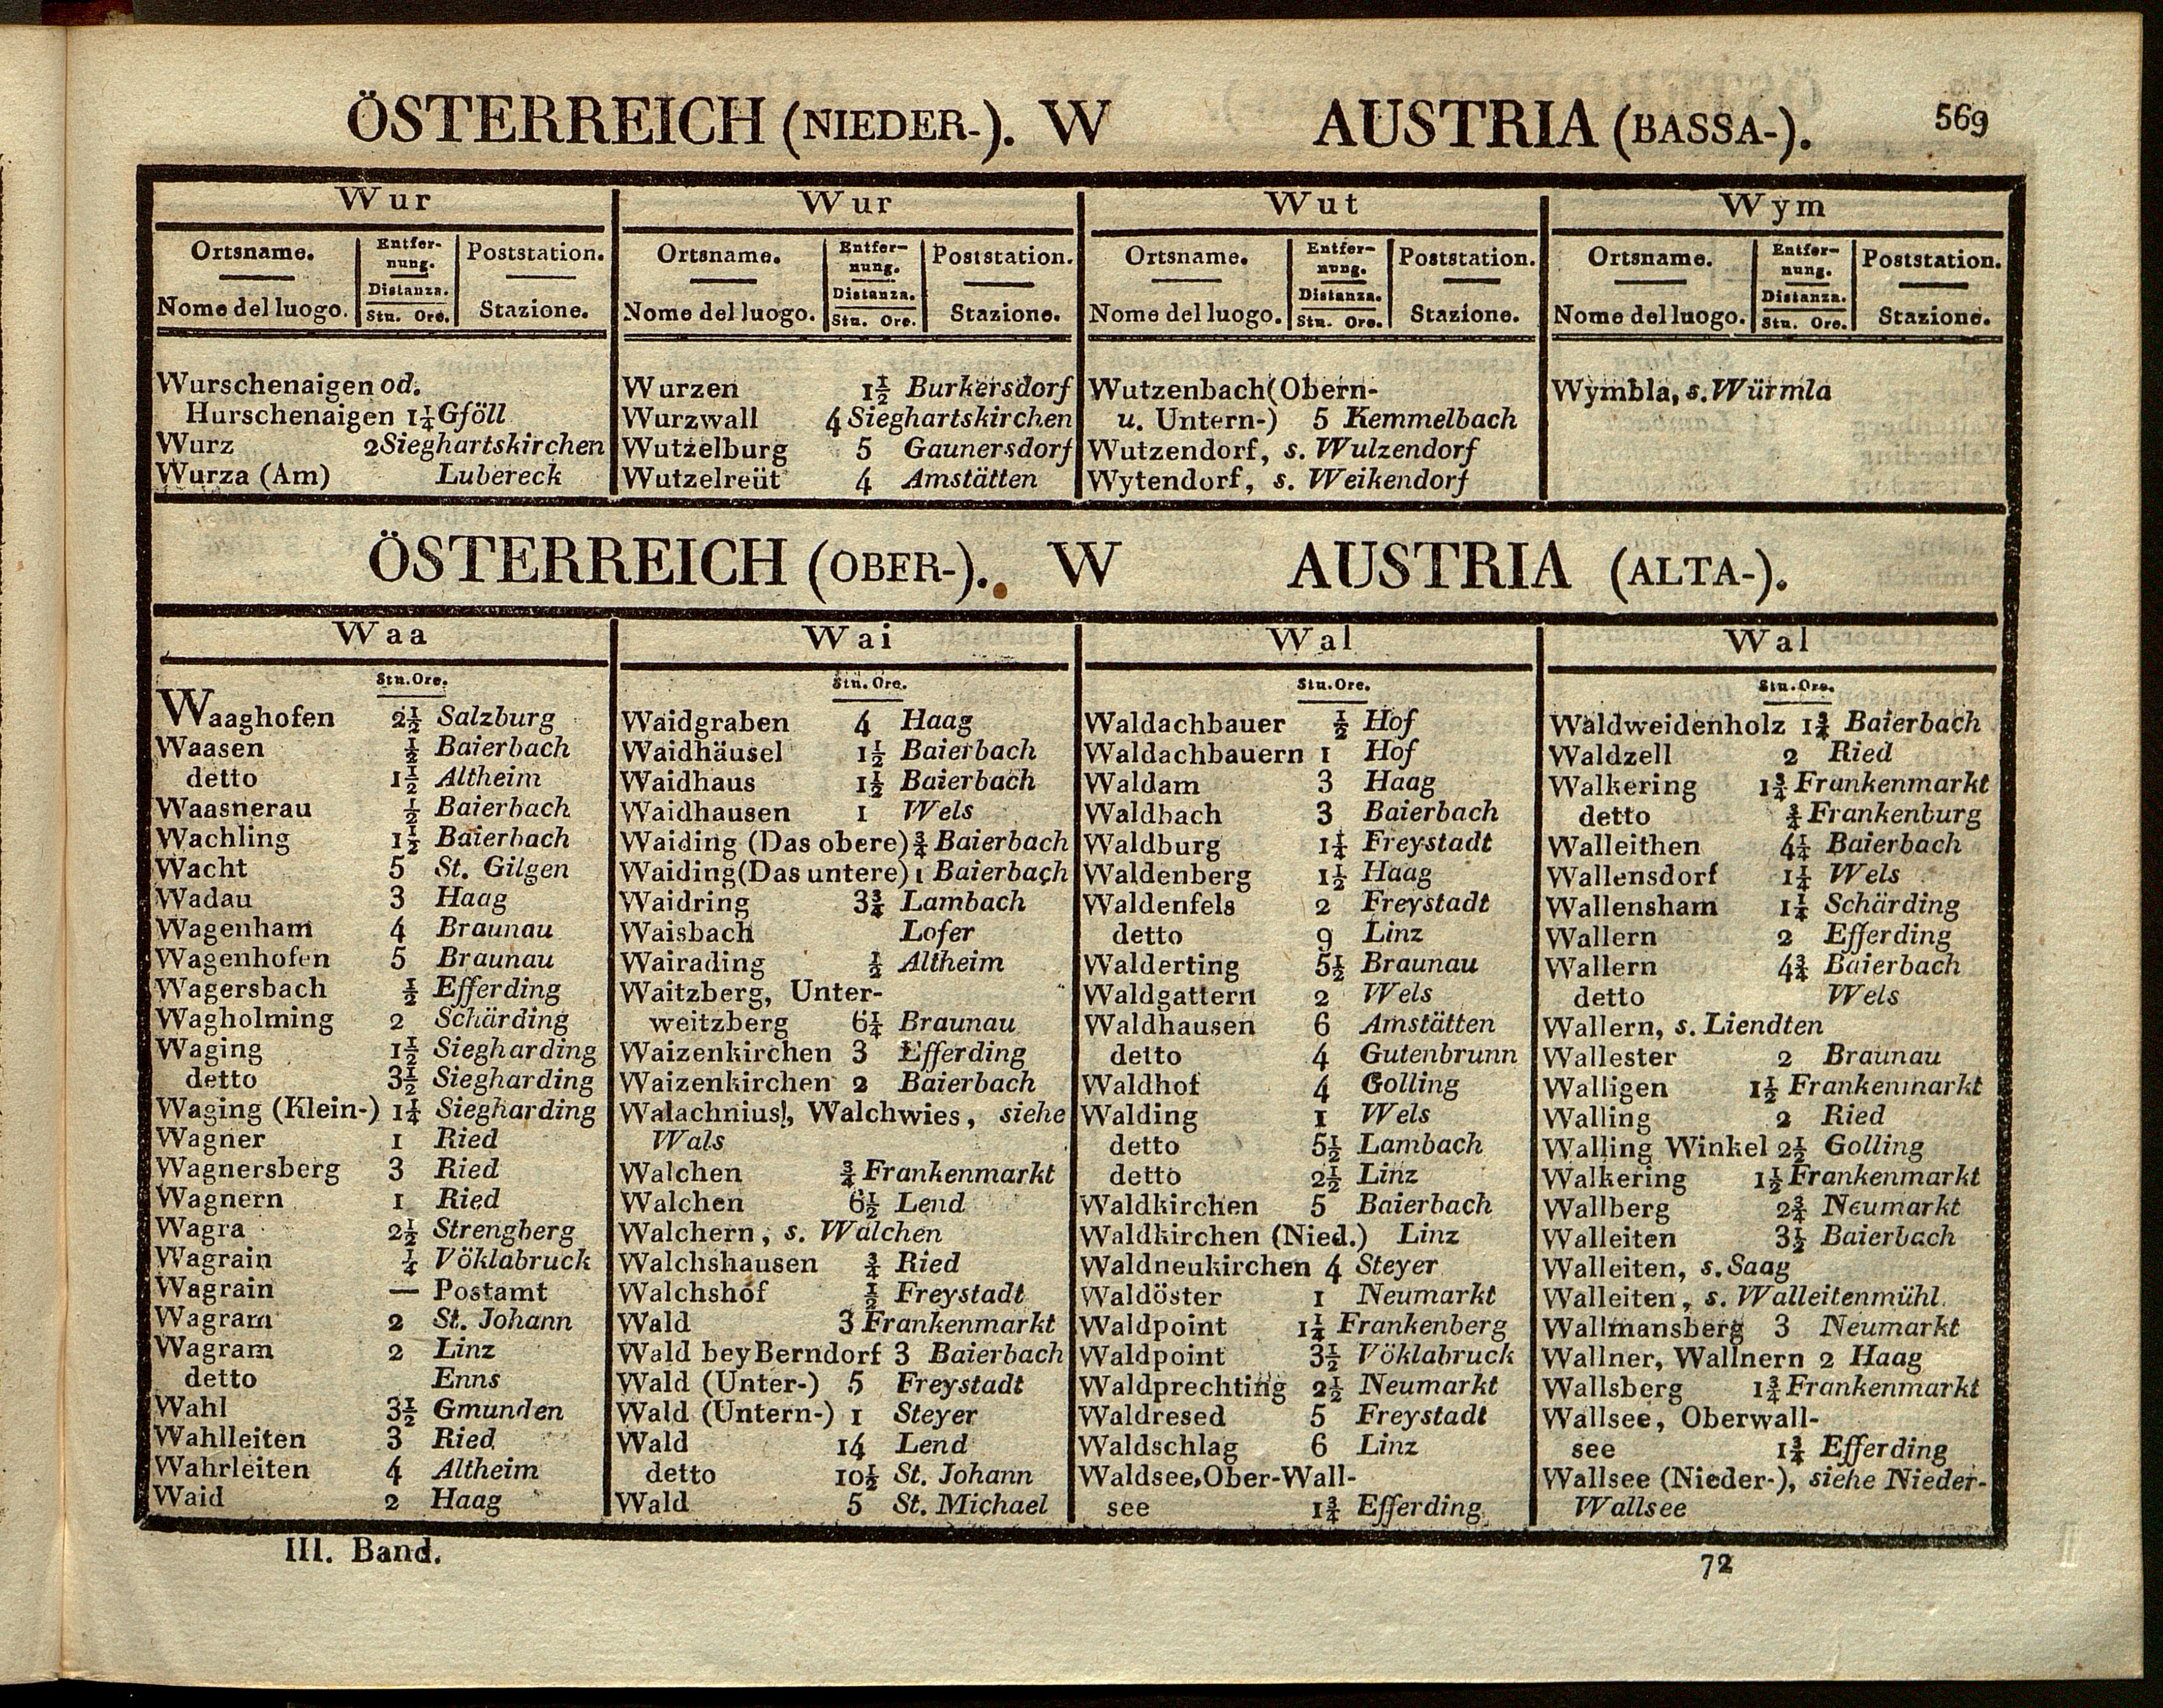 ÖSTERREICH (NIEDER-). W AUSTRIA (BASSA-). 569
Wur
Ortsname. Entfernung. Poststation.
Nome del luogo. Distanza. Stn. Ore. Stazione.
Wurschenaigen od.
Hurschenaigen 1¼ Gföll
Wurz 2 Sieghartskirchen
Wurza (Am) Lubereck
Wur
Ortsname. Entfernung. Poststation.
Nome del luogo. Distanza. Stn. Ore. Stazione.
Wurzen 1½ Burkersdorf
Wurzwall 4 Sieghartskirchen
Wutzelburg 5 Gaunersdorf
Wutzelreüt 4 Amstätten
Wut
Ortsname. Entfernung. Poststation.
Nome del luogo. Distanza. Stn. Ore. Stazione.
Wutzenbach (Obern-
u. Untern-) 5 Kemmelbach
Wutzendorf, s. Wulzendorf
Wytendorf, s. Weikendorf
Wym
Ortsname. Entfernung. Poststation.
Nome del luogo. Distanza. Stn. Ore. Stazione.
Wymbla, s. Würmla
ÖSTERREICH (OBER-). W AUSTRIA (ALTA-).
Waa
Stn. Ore.
Waaghofen 2½ Salzburg
Waasen ½ Baierbach
detto 1½ Altheim
Waasnerau ½ Baierbach
Wachling 1½ Baierbach
Wacht 5 St. Gilgen
Wadau 3 Haag
Wagenham 4 Braunau
Wagenhofen 5 Braunau
Wagersbach ½ Efferding
Wagholming 2 Schärding
Waging 1½ Siegharding
detto 3½ Siegharding
Waging (Klein-) 1¼ Siegharding
Wagner 1 Ried
Wagnersberg 3 Ried
Wagnern 1 Ried
Wagra 2½ Strengberg
Wagrain ¼ Vöklabruck
Wagrain — Postamt
Wagram 2 St. Johann
Wagram 2 Linz
detto Enns
Wahl 3½ Gmunden
Wahlleiten 3 Ried
Wahrleiten 4 Altheim
Waid 2 Haag
Wai
Stn. Ore.
Waidgraben 4 Haag
Waidhäusel 1½ Baierbach
Waidhaus 1½ Baierbach
Waidhausen 1 Wels
Waiding (Das obere) ¾ Baierbach
Waiding (Das untere) 1 Baierbach
Waidring 3¾ Lambach
Waisbach Lofer
Wairading ½ Altheim
Waitzberg, Unter-
weitzberg 6¼ Braunau
Waizenkirchen 3 Efferding
Waizenkirchen 2 Baierbach
Walachniusl, Walchwies, siehe
Wals
Walchen ¾ Frankenmarkt
Walchen 6½ Lend
Walchern, s. Walchen
Walchshausen ¾ Ried
Walchshof ½ Freystadt
Wald 3 Frankenmarkt
Wald bey Berndorf 3 Baierbach
Wald (Unter-) 5 Freystadt
Wald (Untern-) 1 Steyer
Wald 14 Lend
detto 10½ St. Johann
Wald 5 St. Michael
Wal
Stn. Ore.
Waldachbauer ½ Hof
Waldachbauern 1 Hof
Waldam 3 Haag
Waldbach 3 Baierbach
Waldburg 1¼ Freystadt
Waldenberg 1½ Haag
Waldenfels 2 Freystadt
detto 9 Linz
Walderting 5½ Braunau
Waldgattern 2 Wels
Waldhausen 6 Amstätten
detto 4 Gutenbrunn
Waldhof 4 Golling
Walding 1 Wels
detto 5½ Lambach
detto 2½ Linz
Waldkirchen 5 Baierbach
Waldkirchen (Nied.) Linz
Waldneukirchen 4 Steyer
Waldöster 1 Neumarkt
Waldpoint 1¼ Frankenberg
Waldpoint 3½ Vöklabruck
Waldprechting 2½ Neumarkt
Waldresed 5 Freystadt
Waldschlag 6 Linz
Waldsee, Ober-Wall-
see 1¾ Efferding
Wal
Stn. Ore.
Waldweidenholz 1¾ Baierbach
Waldzell 2 Ried
Walkering 1¾ Frankenmarkt
detto ¾ Frankenburg
Walleithen 4¼ Baierbach
Wallensdorf 1¼ Wels
Wallensham 1¼ Schärding
Wallern 2 Efferding
Wallern 4¾ Baierbach
detto Wels
Wallern, s. Liendten
Wallester 2 Braunau
Walligen 1½ Frankenmarkt
Walling 2 Ried
Walling Winkel 2½ Golling
Walkering 1½ Frankenmarkt
Wallberg 2¾ Neumarkt
Walleiten 3½ Baierbach
Walleiten, s. Saag
Walleiten, s. Walleitenmühl.
Wallmansberg 3 Neumarkt
Wallner, Wallnern 2 Haag
Wallsberg 1¾ Frankenmarkt
Wallsee, Oberwall-
see 1¾ Efferding
Wallsee (Nieder-), siehe Nieder-
Wallsee
III. Band. 72